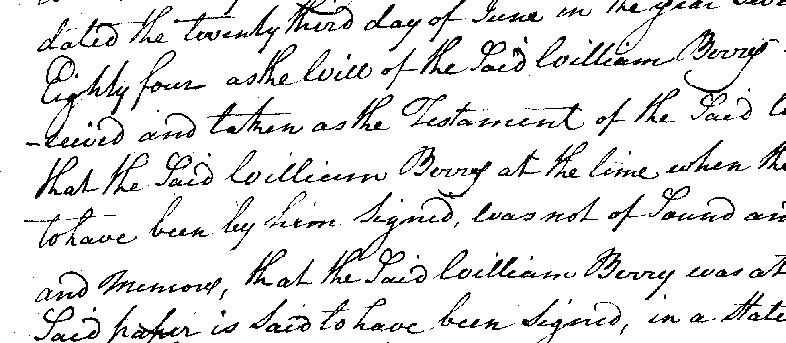 dated the twenty third day of June in the year
Eighty four as the Will of the Said William Berry
-ceived and taken as the Testament of the Said
that the Said William Berry at the time when the
to have been by him Signed, was not of Sound an
and Memory, that the Said William Berry was at
Said paper is Said to have been Signed, in a State